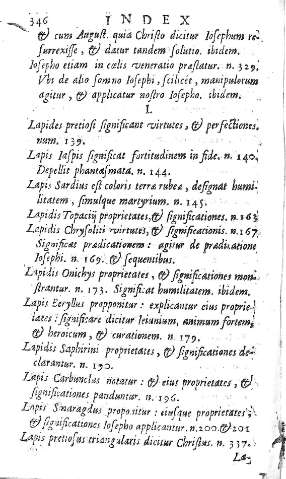 346 INDEX
& cum August. quia Christo dicitur Iosephum re-
surrexisse, & datur tandem solutio. ibidem.
Iosepho etiam in cœlis veneratio præstatur. n. 329.
Vbi de alio somno Iosephi, scilicet, manipulorum
agitur, & applicatur nostro Iosepho. ibidem.
L
Lapides pretiosi significant virtutes, & perfectiones.
num. 139.
Lapis Iaspis significat fortitudinem in fide. n. 140.
Depellit phantasmata. n. 144.
Lapis Sardius est coloris terræ rubeæ, designat humi-
litatem, simulque martyrium. n. 145.
Lapidis Topacij proprietates, & significationes. n. 163
Lapidis Chrysoliti virtutes, & significationis. n. 167.
Significat prædicationem: agitur de prædicatione
Iosephi. n. 169. & sequentibus.
Lapidis Onichys proprietates, & significationes mon-
strantur. n. 173. Significat humilitatem. ibidem.
Lapis Beryllus propponitur: explicantur eius proprie-
tates: significare dicitur Ieiunium, animum fortem,
& heroicum, & curationem. n. 179.
Lapidis Saphirini proprietates, & significationes de-
clarantur. n. 190.
Lapis Carbunclus notatur: & eius proprietates, &
significationes panduntur. n. 196.
Lapis Smaragdus proponitur: eiusque proprietates,
& significationes Iosepho applicantur. n. 200. & 201
Lapis pretiosus triangularis dicitur Christus. n. 337.